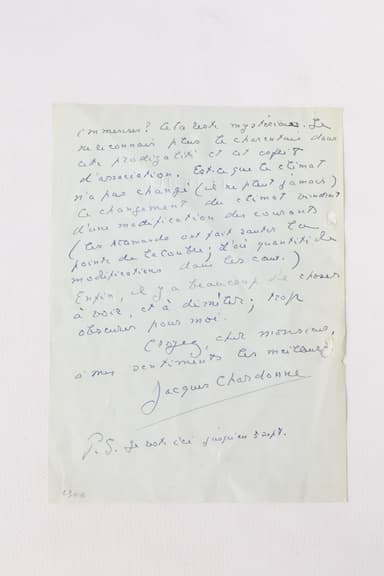 immenses? Cela reste mystérieux. Je
ne reconnais plus le charentais dans
cette prodigalité et cet esprit
d'association. Est-ce que le climat
n'a pas changé (il ne pleut jamais)
Le changement du climat viendrait
d'une modification des courants
(les allemands ont fait sauter la
pointe de la Coubre; d'où quantité de
modifications dans les eaux.)
Enfin, il y a beaucoup de choses
à voir, et à démêler; trop
obscures pour moi.
Croyez, cher monsieur,
à mes sentiments les meilleurs
Jacques Chardonne
P.S. Je reste ici jusqu'au 3 sept.